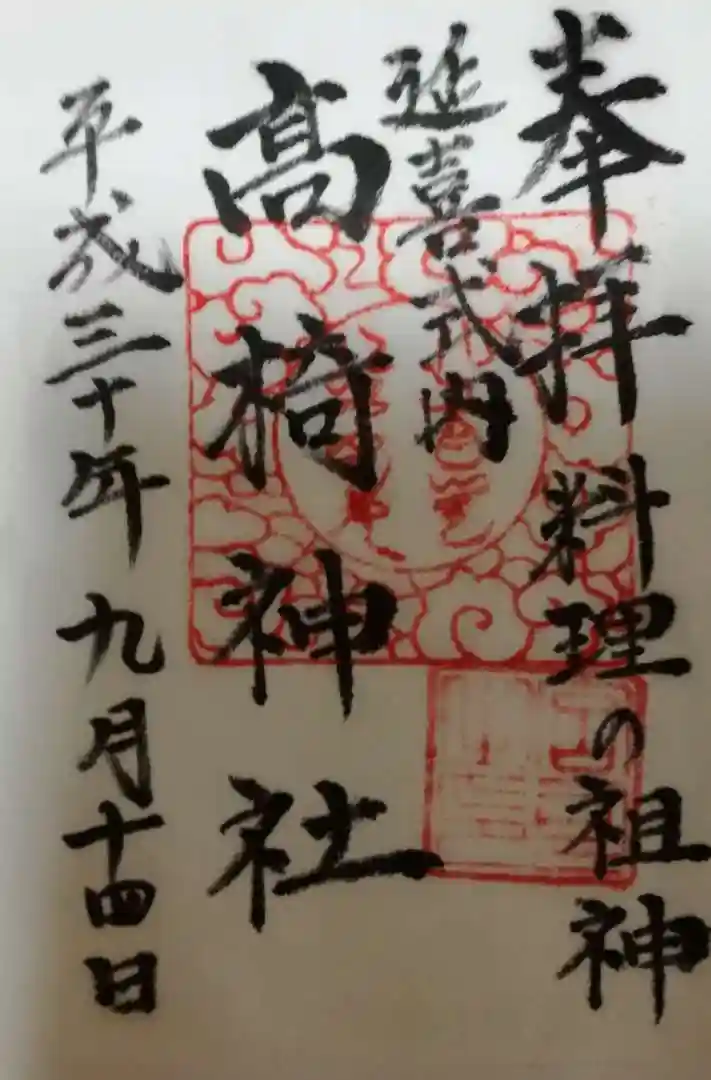 奉拝 料理の祖神
延喜式内
高椅神社
平成三十年 九月十四日